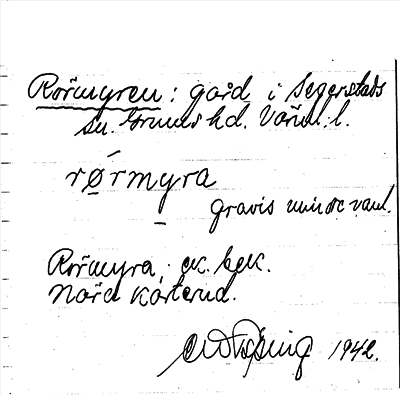 Rörmyren: gård i Segerstads
sn. Grums hd. Värml. l.
rǿrmyra
gravis mindre vanl.
Rörmyra, ek. bek.
Norra Kårterud.
1942.